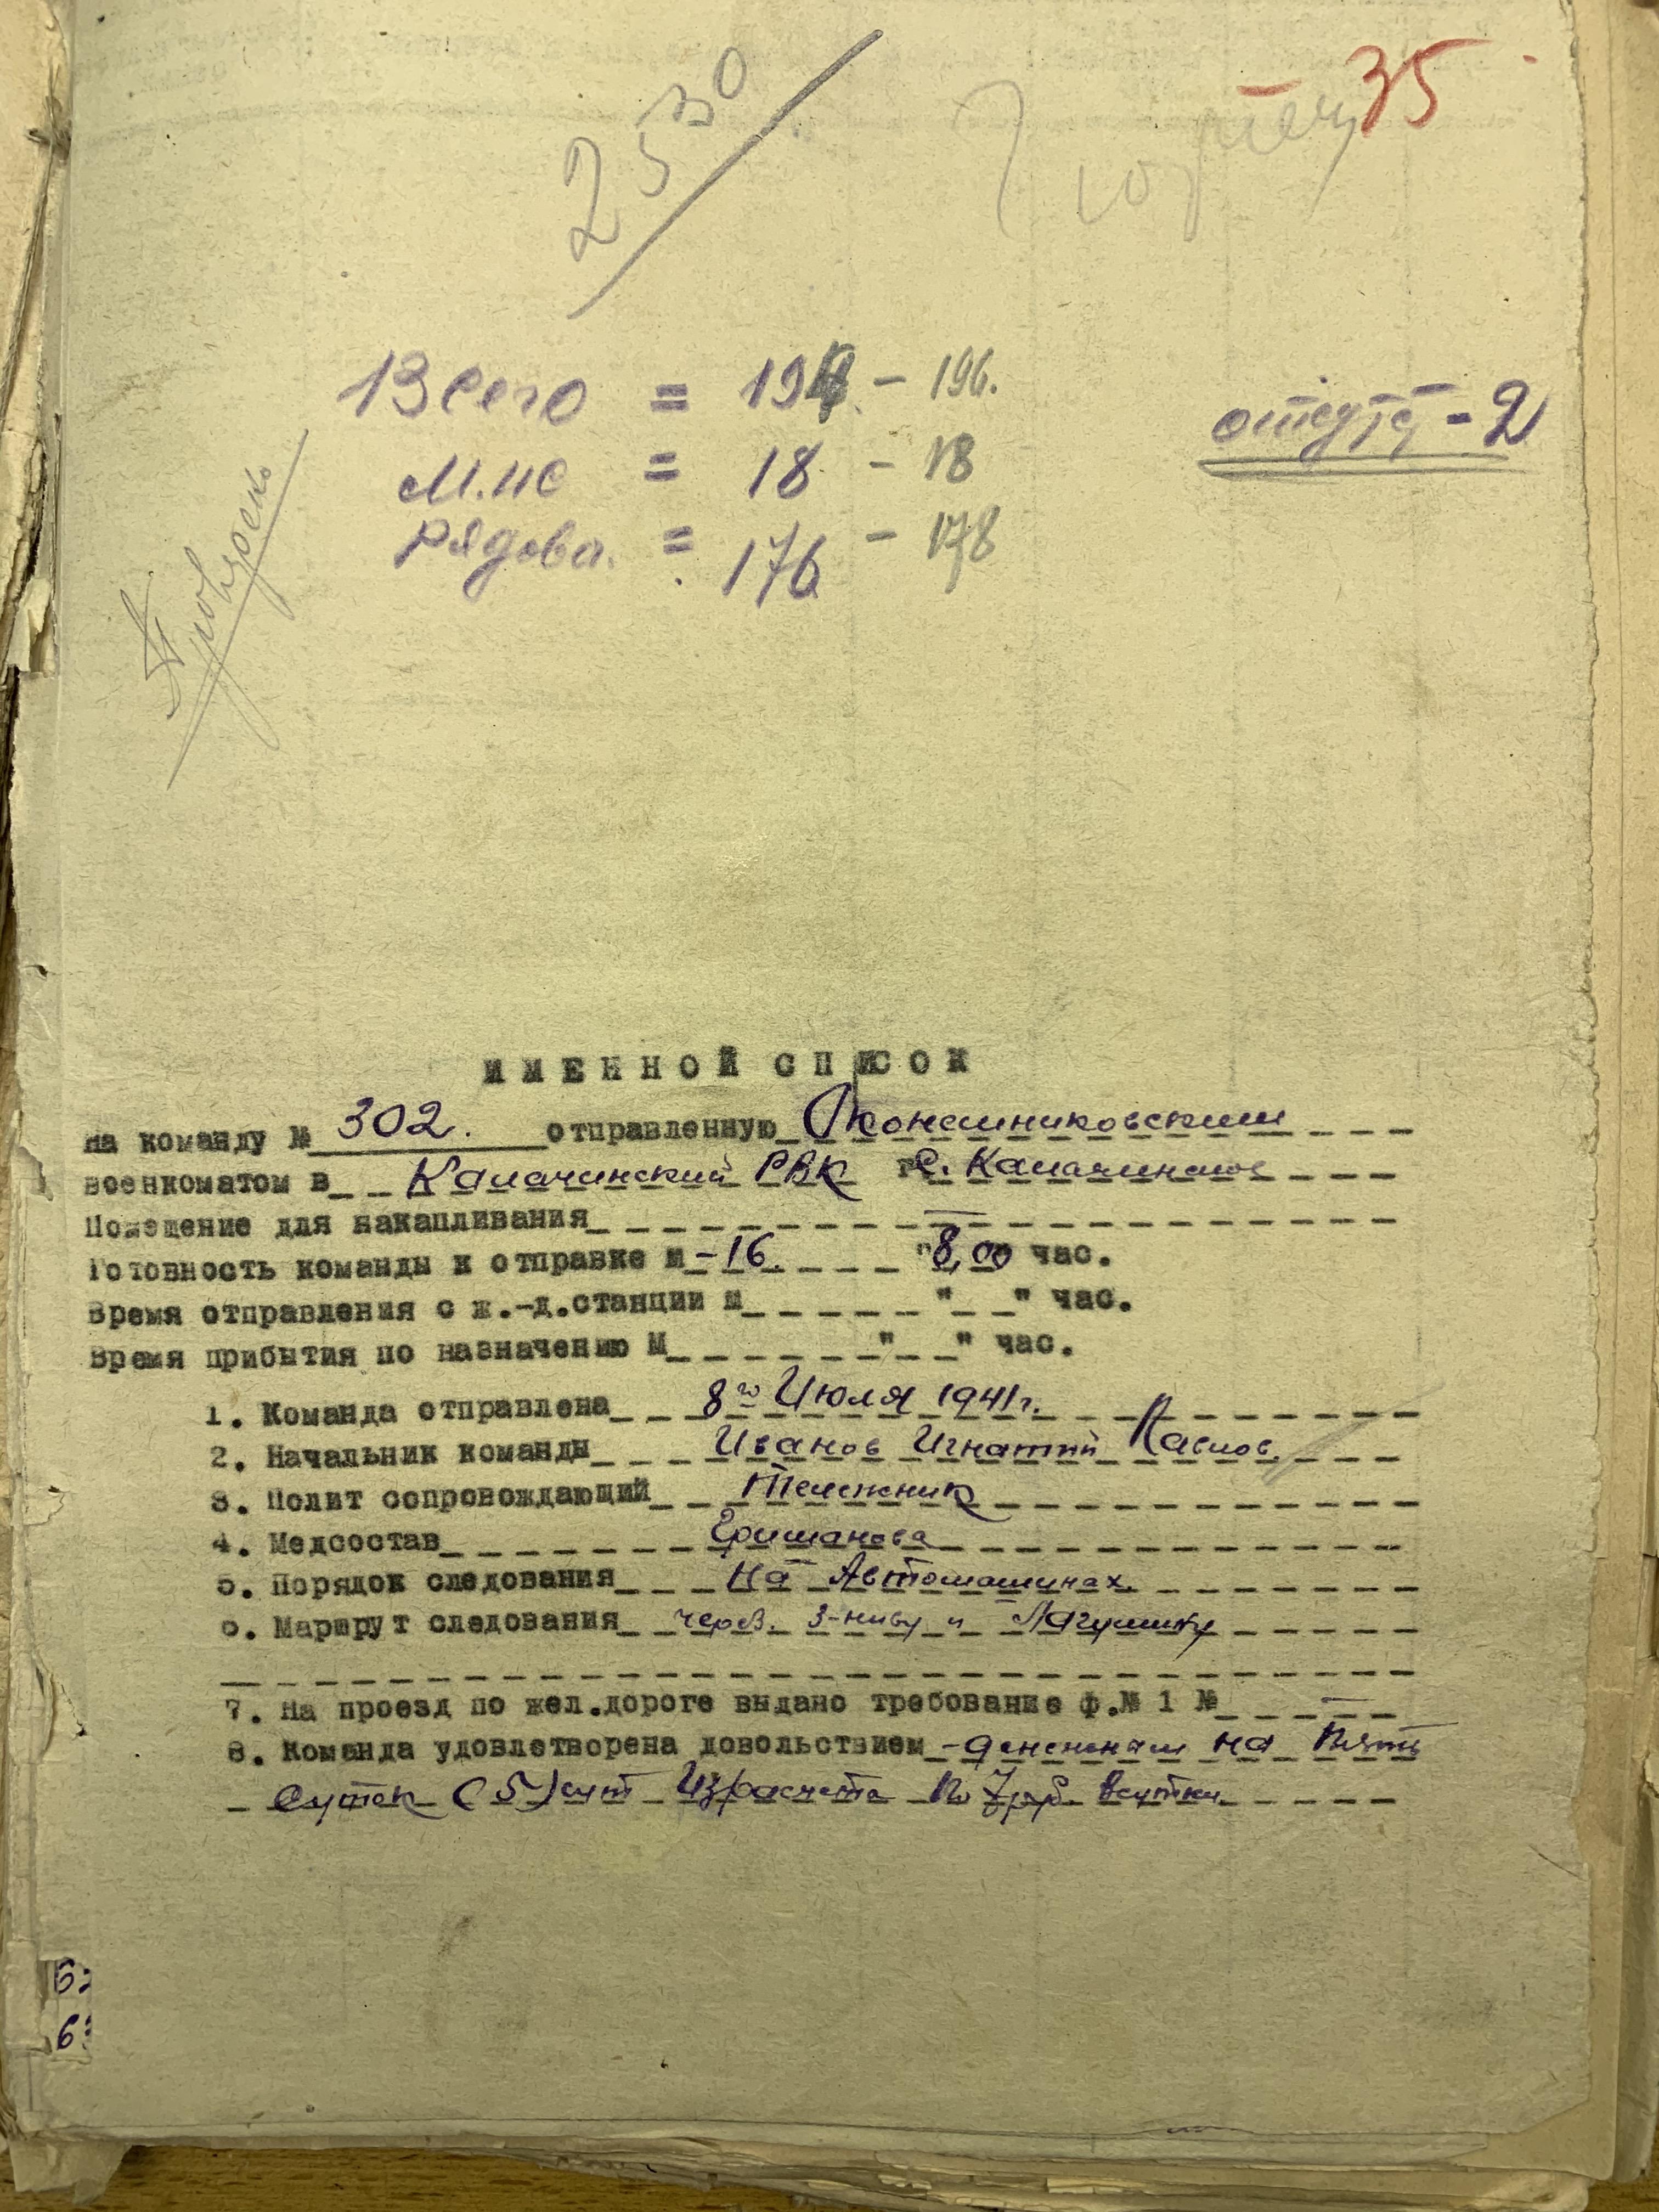 35
2530
Всего = 194 - 196.
отсутст - 2
М.НС = 18 - 18
Рядова. = 176 - 178
ИМЕННОЙ СПИСОК
на команду № 302. отправленную Конешниковским
военкоматом в Калачинский РВК с. Калачинское
Помещение для накапливания —
Готовность команды к отправке М -16. "8,00 час.
Время отправления с ж.-д.станции М " " час.
Время прибытия по назначению М " " час.
1. Команда отправлена 8го Июля 1941г.
2. Начальник команды Иванов Игнатий Павлов.
3. Полит сопровождающий Тележник
4. Медсостав Гришанова
5. Порядок следования на Автомашинах.
6. Маршрут следования через. З-ниву и Лагушку
7. На проезд по жел.дороге выдано требование ф.№ 1 № —
8. Команда удовлетворена довольствием - денежным на Пять
суток (5) сут Израсчета По 7 руб. Всутки.
6
6